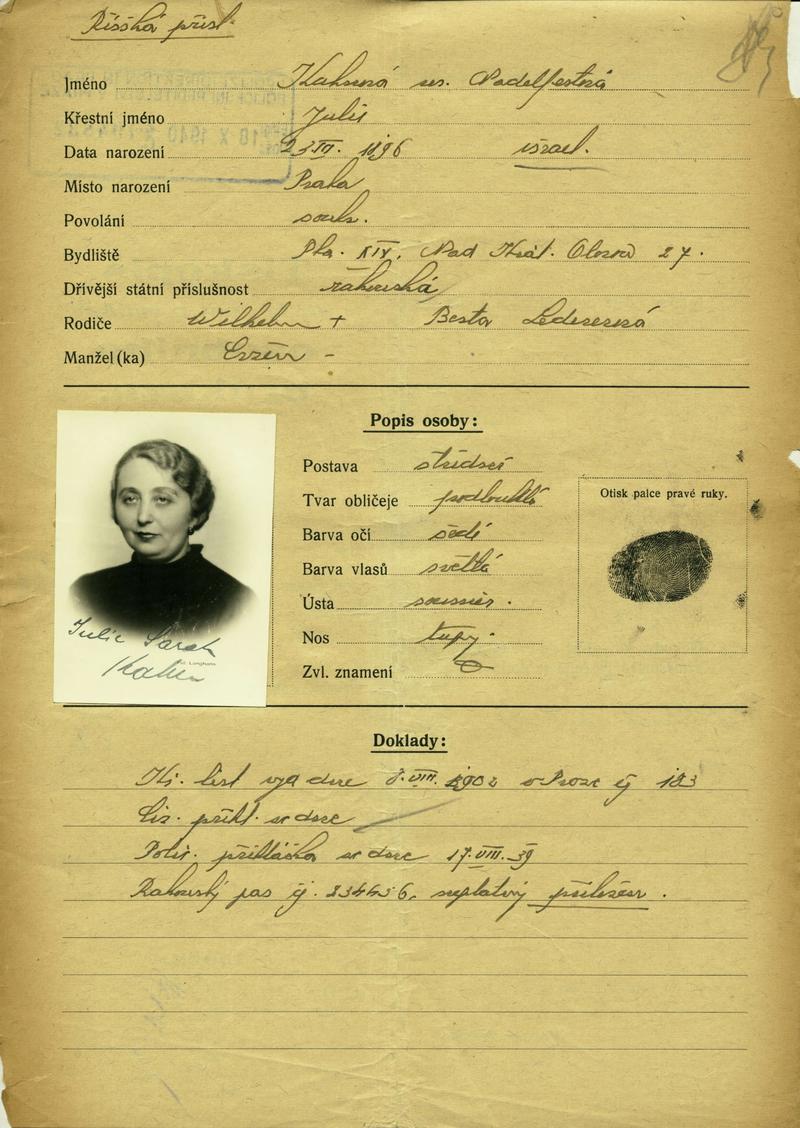 Říšská přísl.
Jméno Kahnová roz. Nadelfestová
Křestní jméno Julie
Data narození 23 III. 1896 israel.
Místo narození Praha
Povolání soukr.
Bydliště Pha. XIX, Nad Král. Oborou 27.
Dřívější státní příslušnost rakouská
Rodiče Wilhelm + Berta Ledererová
Manžel (ka) Evžen -
Popis osoby:
Postava střední
Tvar obličeje podlouhlý
Otisk palce pravé ruky.
Barva očí šedé
Barva vlasů světlá
Ústa souměr.
Nos tupý.
Zvl. znamení
Julie Sarah
Kahn
Langhans
Doklady:
list vyd dne VIII. 1902 v Praze čj 183
přihl. ze dne
Polic. přihláška ze dne 17. VIII. 39
Rakouský pas čj. 234436, neplatný přiložen.